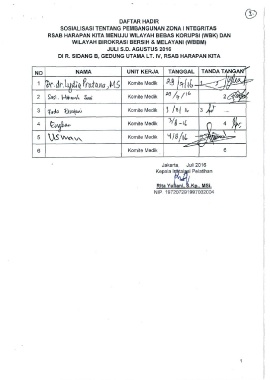 1
DAFTAR HADIR
SOSIALISASI TENTANG PEMBANGUNAN ZONA INTEGRITAS
RSAB HARAPAN KITA MENUJU WILAYAH BEBAS KORUPSI (WBK) DAN
WILAYAH BIROKRASI BERSIH & MELAYANI (WBBM)
JULI S.D. AGUSTUS 2016
DI R. SIDANG B, GEDUNG UTAMA LT. IV, RSAB HARAPAN KITA
NO NAMA UNIT KERJA TANGGAL TANDA TANGAN
1 Dr. dr. Lydia Pratana, MS Komite Medik 29/7/16 1
2 Komite Medik 29/7/16 2
3 Komite Medik 1/8/16 3
4 Komite Medik 3/8-16 4
5 Usman Komite Medik 4/8/16 5
6 Komite Medik 6
Jakarta, Juli 2016
Kepala Instalasi Pelatihan
Rita Yuliani, S.Kp., MSi.